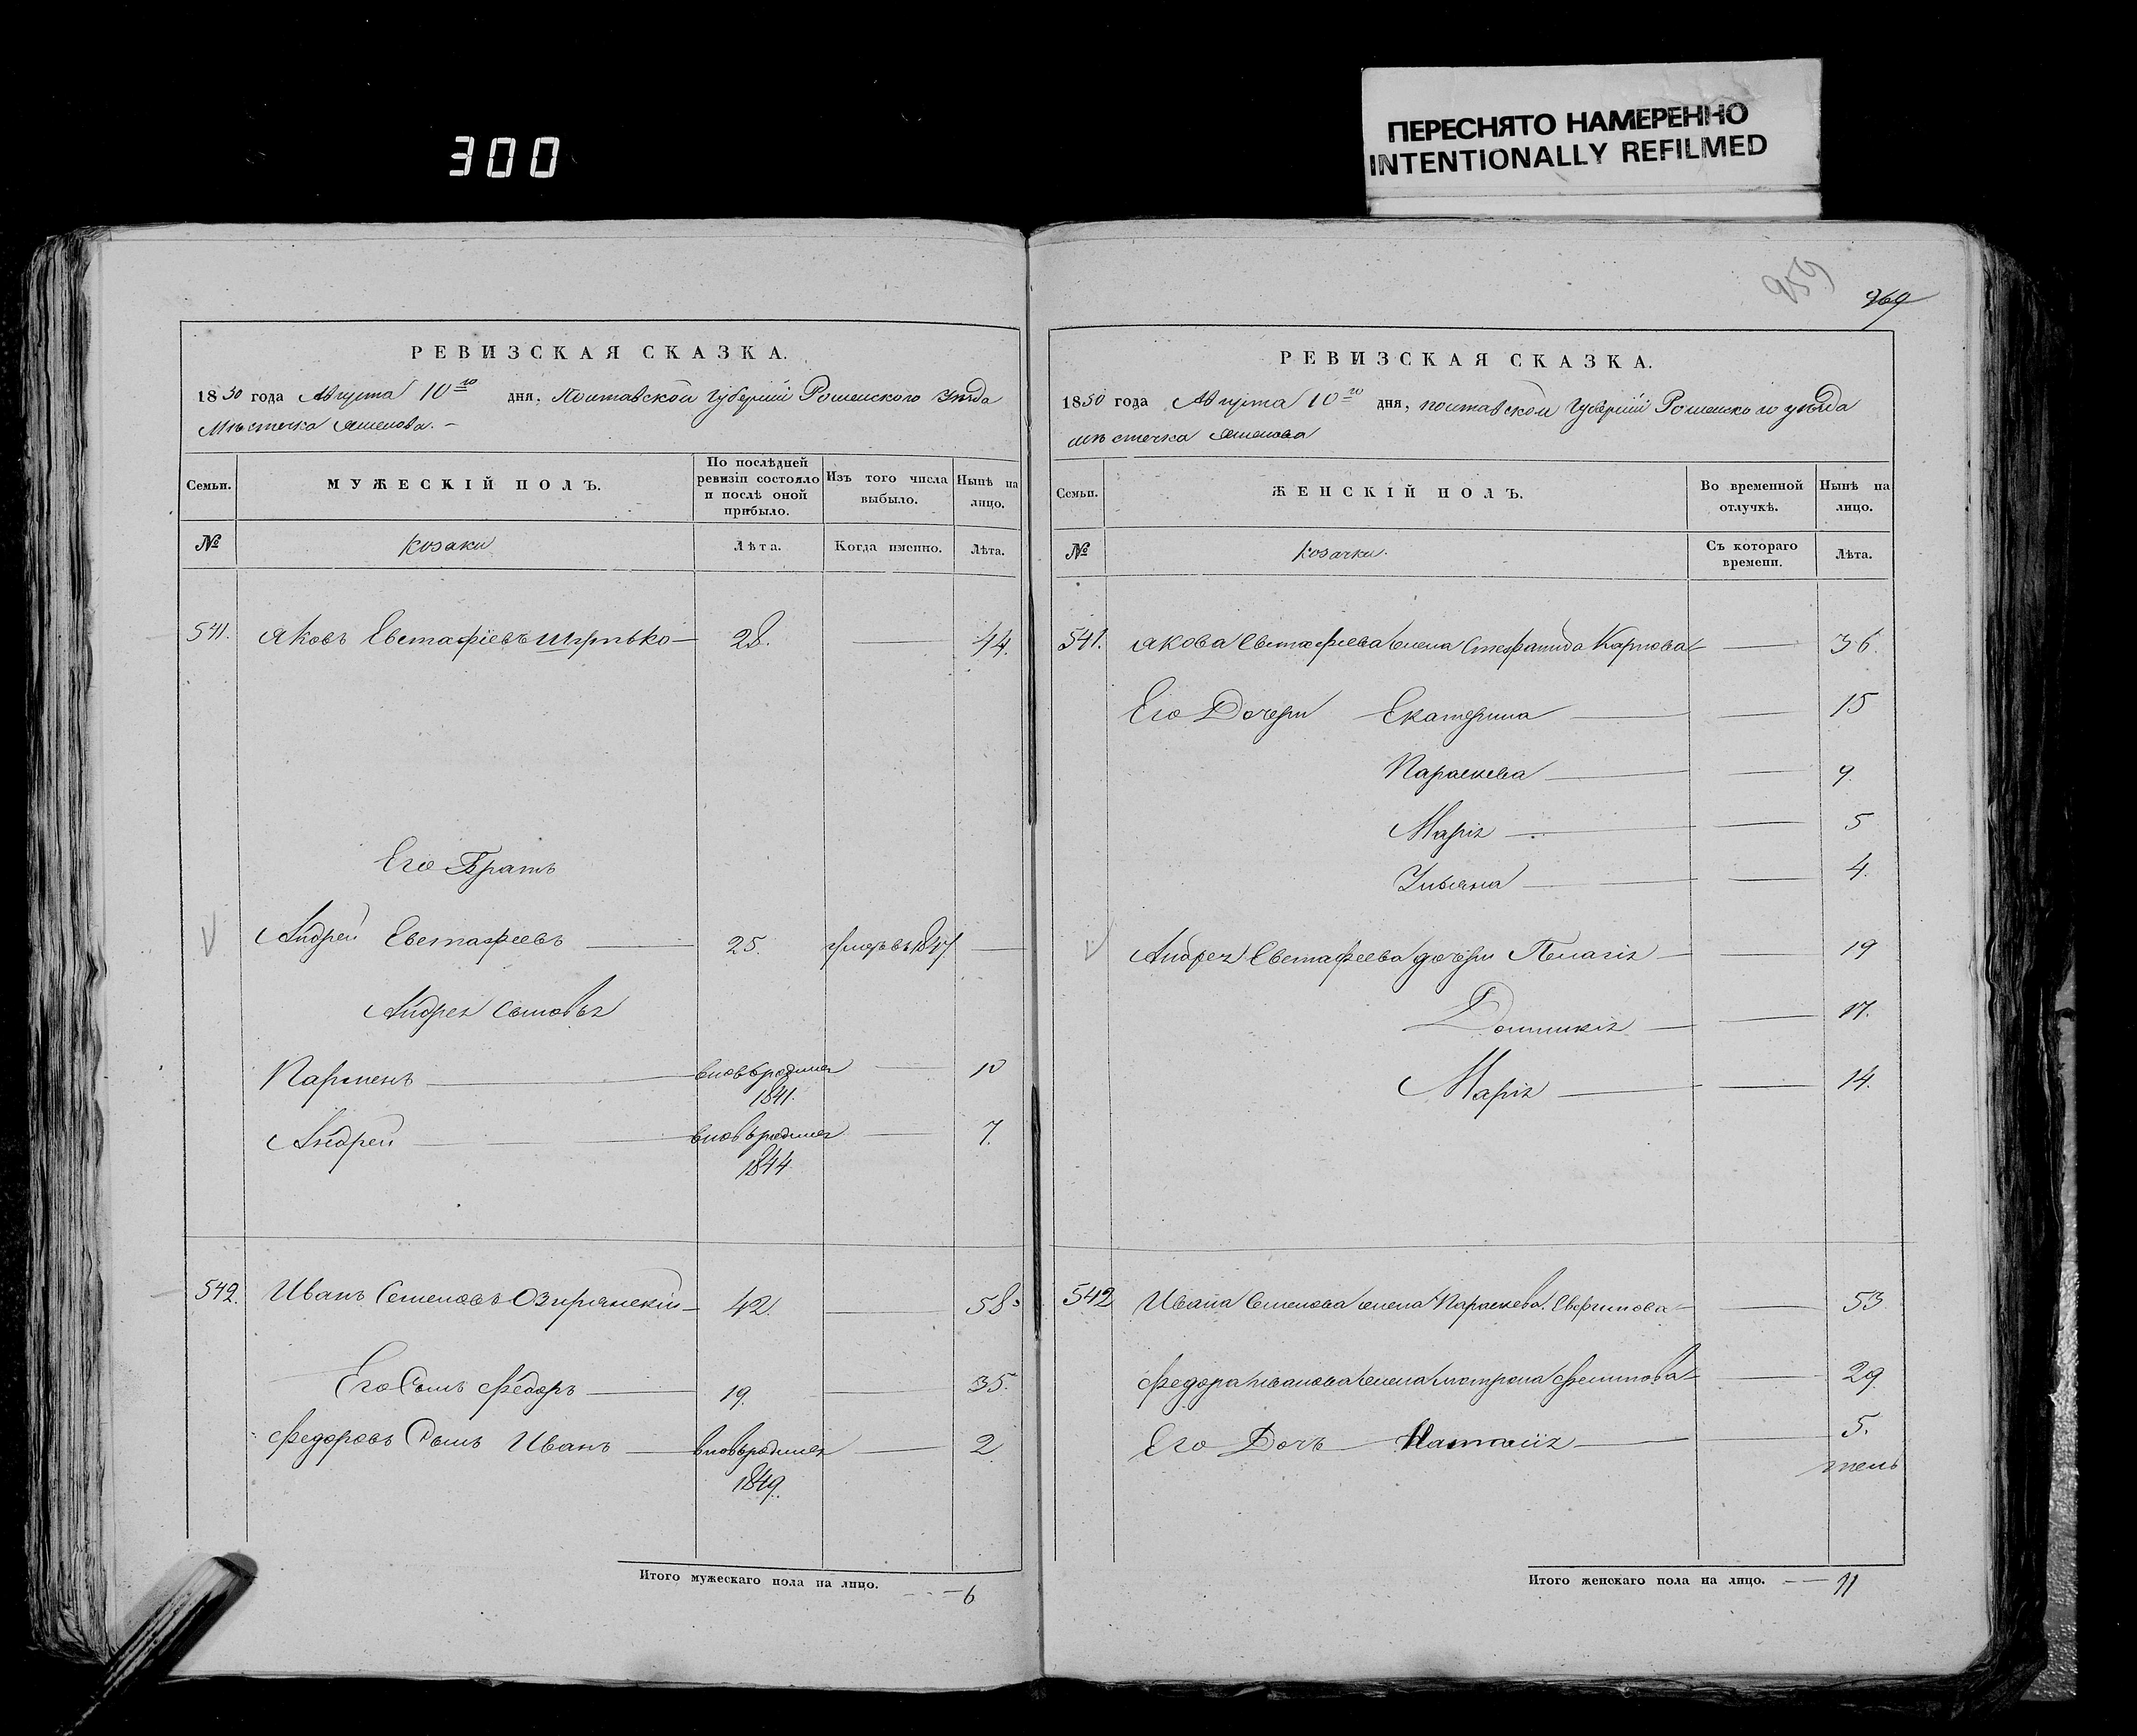 300
ПЕРЕСНЯТО НАМЕРЕННО
INTENTIONALLY REFILMED
959
269
РЕВИЗСКАЯ СКАЗКА.
1850 года Августа 10го дня, Полтавской Губернiи Роменского уѣзда
Мѣстечка
Семьи.
МУЖЕСКІЙ ПОЛЪ.
По послѣдней ревизіи состояло и послѣ оной прибыло.
Изъ того числа выбыло.
Нынѣ на лицо.
№
козаки
Лѣта.
Когда именно.
Лѣта.
541. Яковъ Евстафіевъ — 28. — 44.
Его Братъ
Андрей Евстафеевъ — 25. умеръ въ 1847 —
Андрея сыновья
Парменъ — вновьродился 1841. — 10
Андрей — вновьродился 1844. — 7.
542. Иванъ Семеновъ Озирянскій — 42. — 58.
Его Сынъ Федоръ — 19. — 35.
Федоровъ Сынъ Иванъ — вновьродился 1849. — 2.
Итого мужескаго пола на лицо. — 6
РЕВИЗСКАЯ СКАЗКА.
1850 года Августа 10го дня, полтавской Губерніи Роменского уѣзда
мѣстечка
Семьи.
ЖЕНСКІЙ ПОЛЪ.
Во временной отлучкѣ.
Нынѣ на лицо.
№
козачки.
Съ котораго времени.
Лѣта.
541. Якова Евстафеева жена Стефанида Карпова — — 36.
Его Дочери Екатерина — — 15
Параскева — — 9.
Марія — — 5
Ульяна — — 4.
Андрея Евстафеева дочери Пелагія — — 19
Домникія — — 17.
Марія — — 14.
542 Ивана Семенова жена Параскева — — 53
Федора Иванова жена мотрона — — 29.
Его Дочь Наталія — — 5.
Итого женскаго пола на лицо. — 11